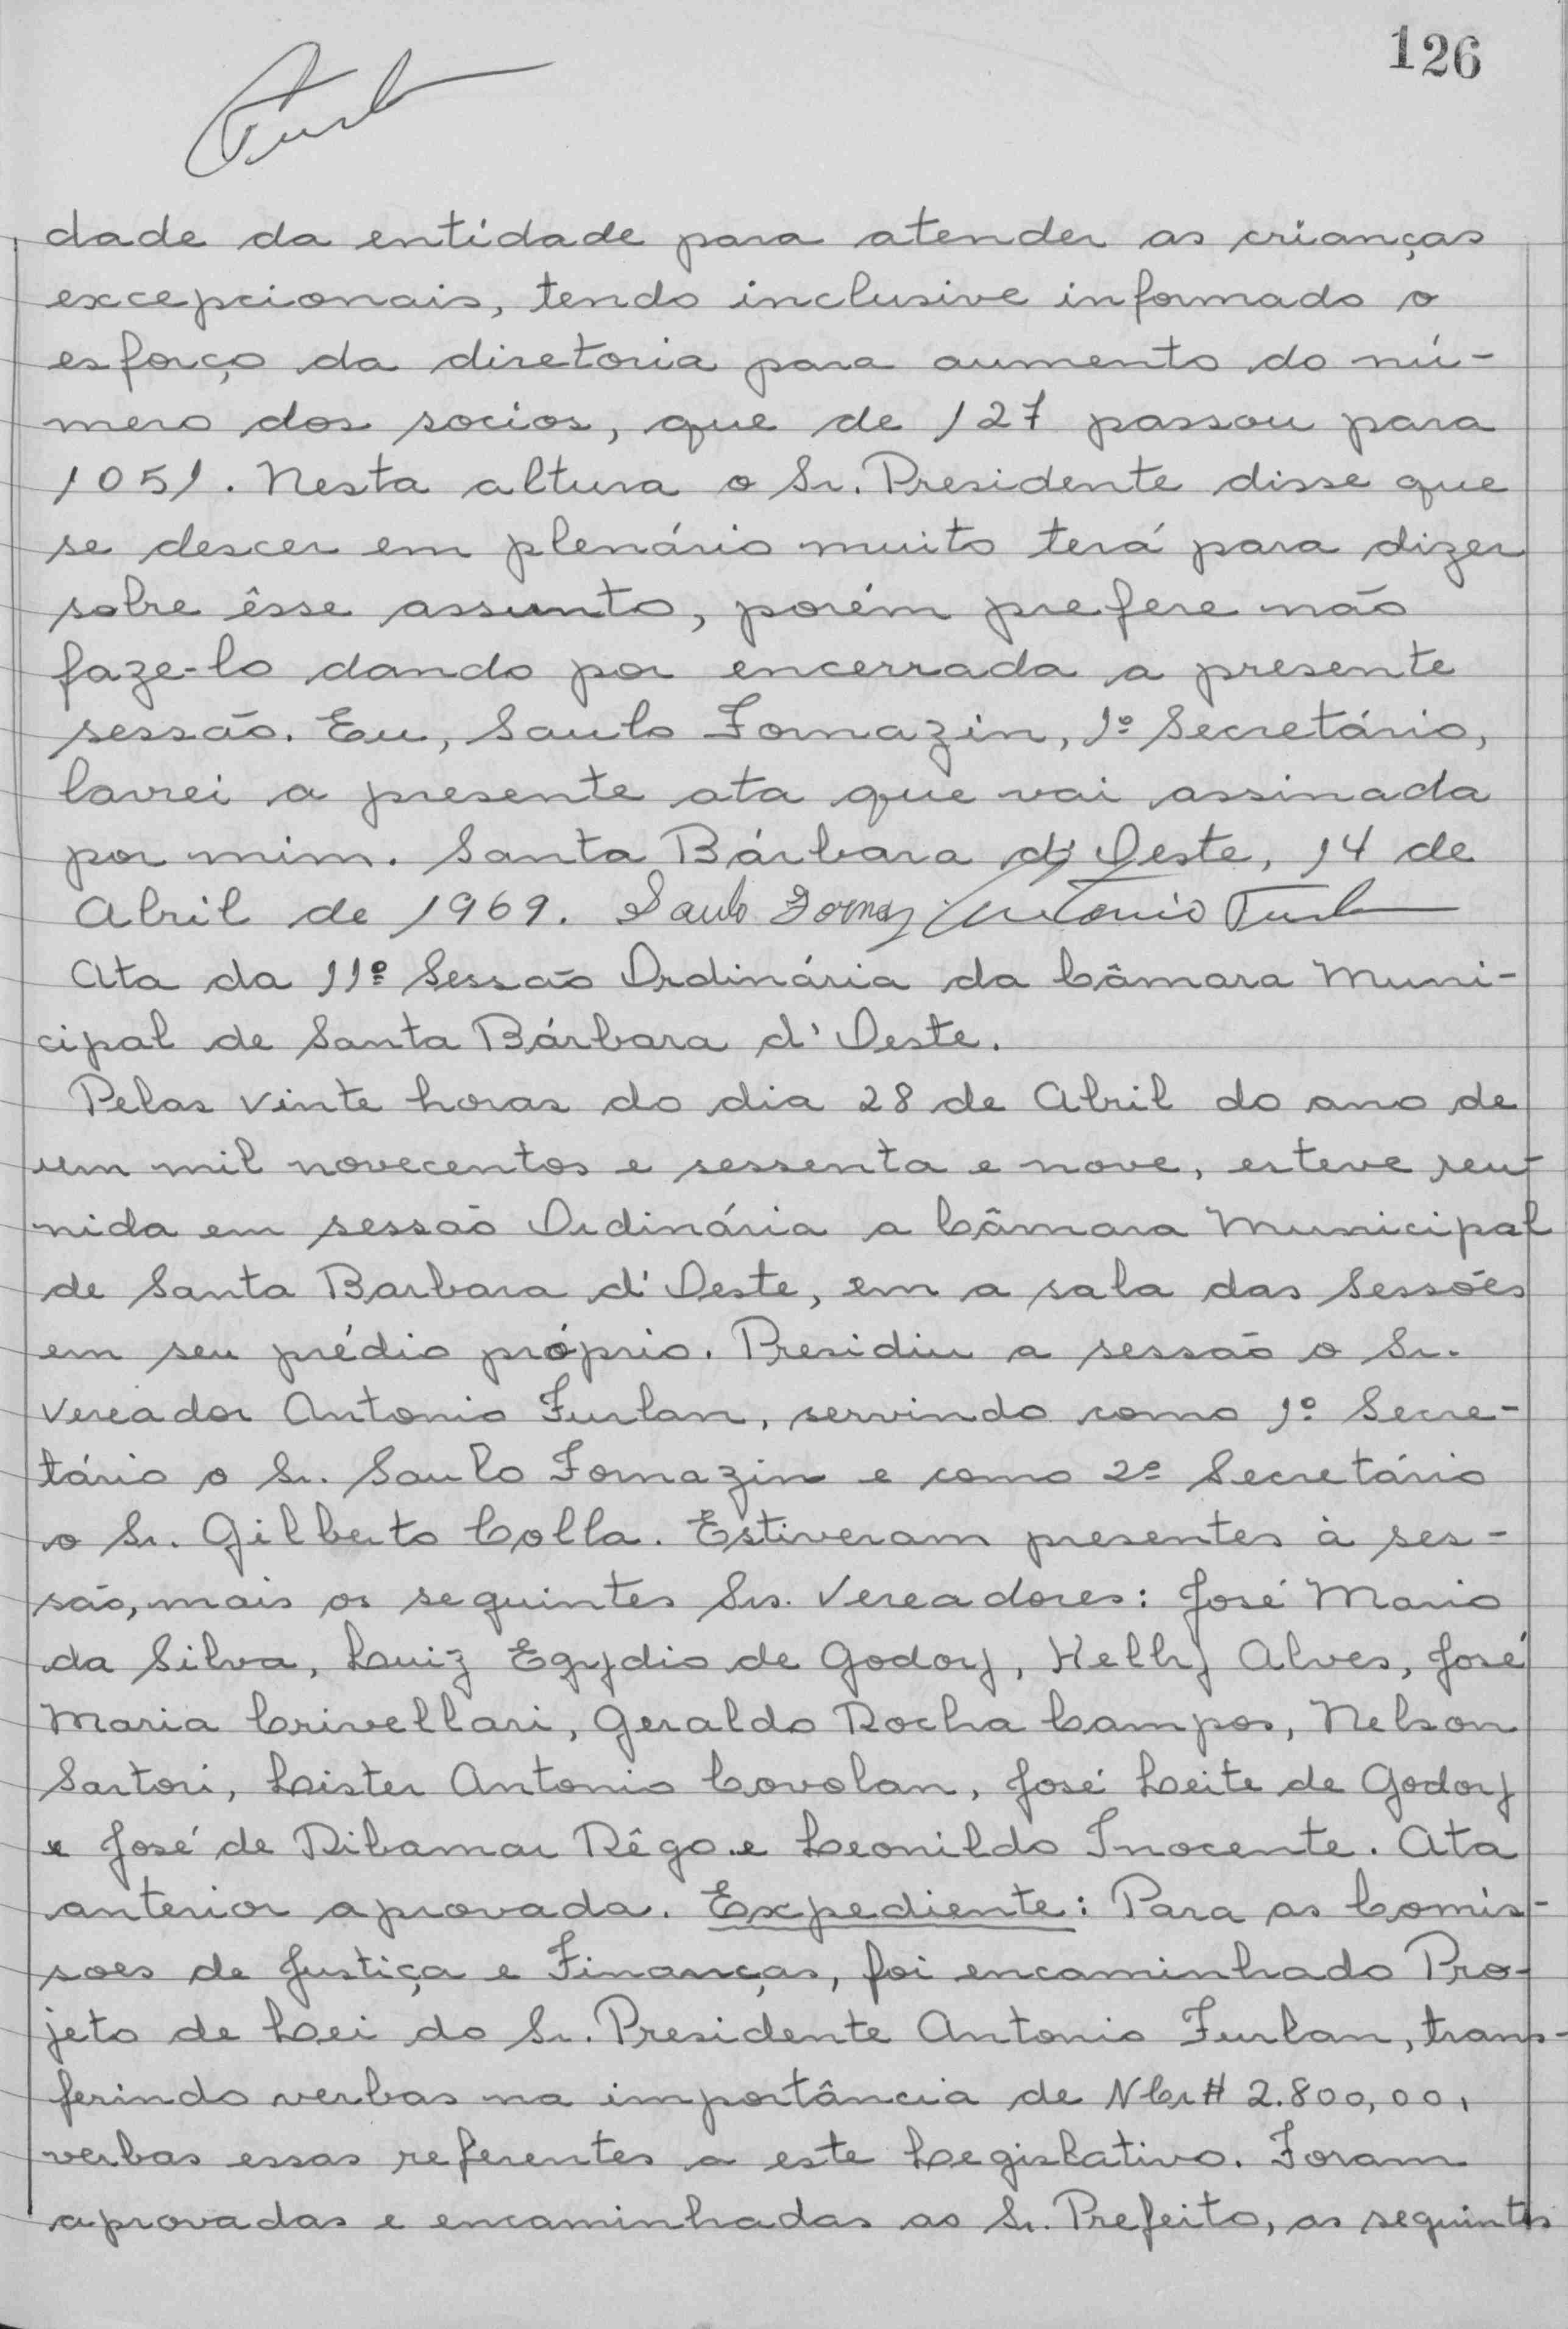 126
dade da entidade para atender as crianças
excepcionais, tendo inclusive informado o
esforço da diretoria para aumento do nú-
mero dos socios, que de 127 passou para
1051. Nesta altura o Sr. Presidente disse que
se descer em plenário muito terá para dizer
sobre êsse assunto, porém prefere não
faze-lo dando por encerrada a presente
sessão. Eu, Saulo Fornazin, 1º Secretário,
lavrei a presente ata que vai assinada
por mim. Santa Bárbara d'Oeste, 14 de
Abril de 1969. Saulo Fornaz Antonio Furlan
Ata da 11º Sessão Ordinária da Câmara Muni-
cipal de Santa Bárbara d'Oeste.
Pelas vinte horas do dia 28 de Abril do ano de
um mil novecentos e sessenta e nove, esteve reu-
nida em sessão Ordinária a Câmara Municipal
de Santa Barbara d'Oeste, em a sala das Sessões
em seu prédio próprio. Presidiu a sessão o Sr.
Vereador Antonio Furlan, servindo como 1º Secre-
tário o Sr. Saulo Fornazin e como 2º Secretário
o Sr. Gilberto Colla. Estiveram presentes à ses-
são, mais os seguintes Srs. Vereadores: José Mario
da Silva, Luiz Egydio de Godoy, Helly Alves, José
Maria Crivellari, Geraldo Rocha Campos, Nelson
Sartori, Lister Antonio Covolan, José Leite de Godoy
e José de Ribamar Rêgo e Leonildo Inocente. Ata
anterior aprovada. Expediente: Para as Comis-
soes de Justiça e Finanças, foi encaminhado Pro-
jeto de Lei do Sr. Presidente Antonio Furlan, trans-
ferindo verbas na importância de NCr# 2.800,00,
verbas essas referentes a este Legislativo. Foram
aprovadas e encaminhadas ao Sr. Prefeito, as seguintes